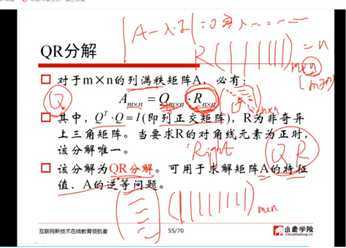 |A-λ·I|=0
QR分解
R(||||||)=n
对于m×n的列满秩矩阵A，必有：
A m×n = Q m×n · R n×n
其中，Q^T·Q=I(即列正交矩阵)，R为非奇异
上三角矩阵。当要求R的对角线元素为正时，
该分解唯一。
Right
Q R
该分解为QR分解。可用于求解矩阵A的特征
值、A的逆等问题。
m×n
互联网新技术在线教育领航者
55/70
小象学院